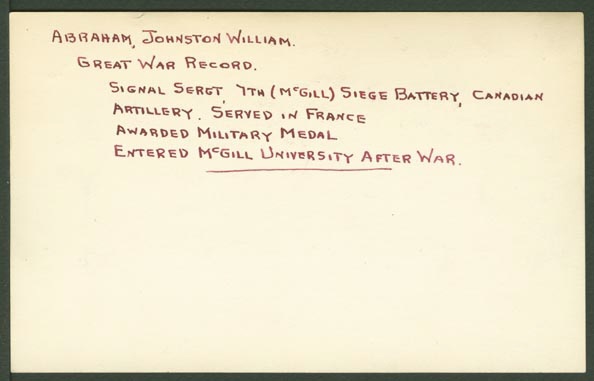 ABRAHAM, JOHNSTON WILLIAM.
GREAT WAR RECORD.
SIGNAL SERGT, 7TH (McGILL) SIEGE BATTERY, CANADIAN
ARTILLERY. SERVED IN FRANCE
AWARDED MILITARY MEDAL
ENTERED McGILL UNIVERSITY AFTER WAR.